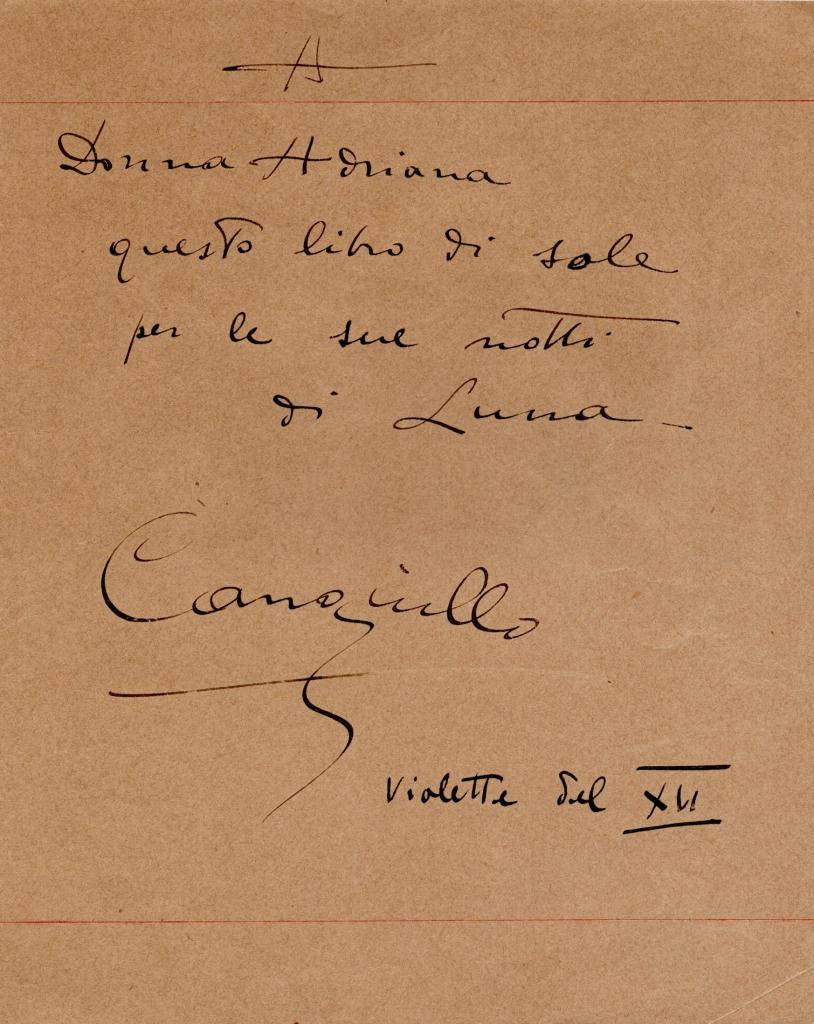 A
Donna Adriana
questo libro di sole
per le sue notti
di Luna -
Cangiullo
Violette del XVI